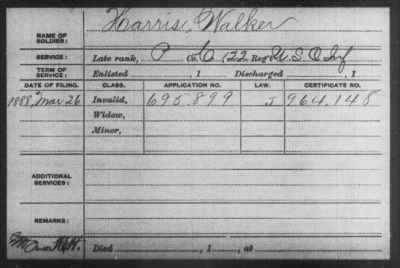 Harris, Walker
NAME OF SOLDIER:
SERVICE: Late rank, P Co. C, 122 Reg't U.S.C. Inf
TERM OF SERVICE: Enlisted , 1 Discharged , 1
DATE OF FILING. CLASS. APPLICATION NO. LAW. CERTIFICATE NO.
1888, Mar 26 Invalid, 695,899 J 964,148
Widow,
Minor,
ADDITIONAL SERVICES:
REMARKS:
Died , 1 , at